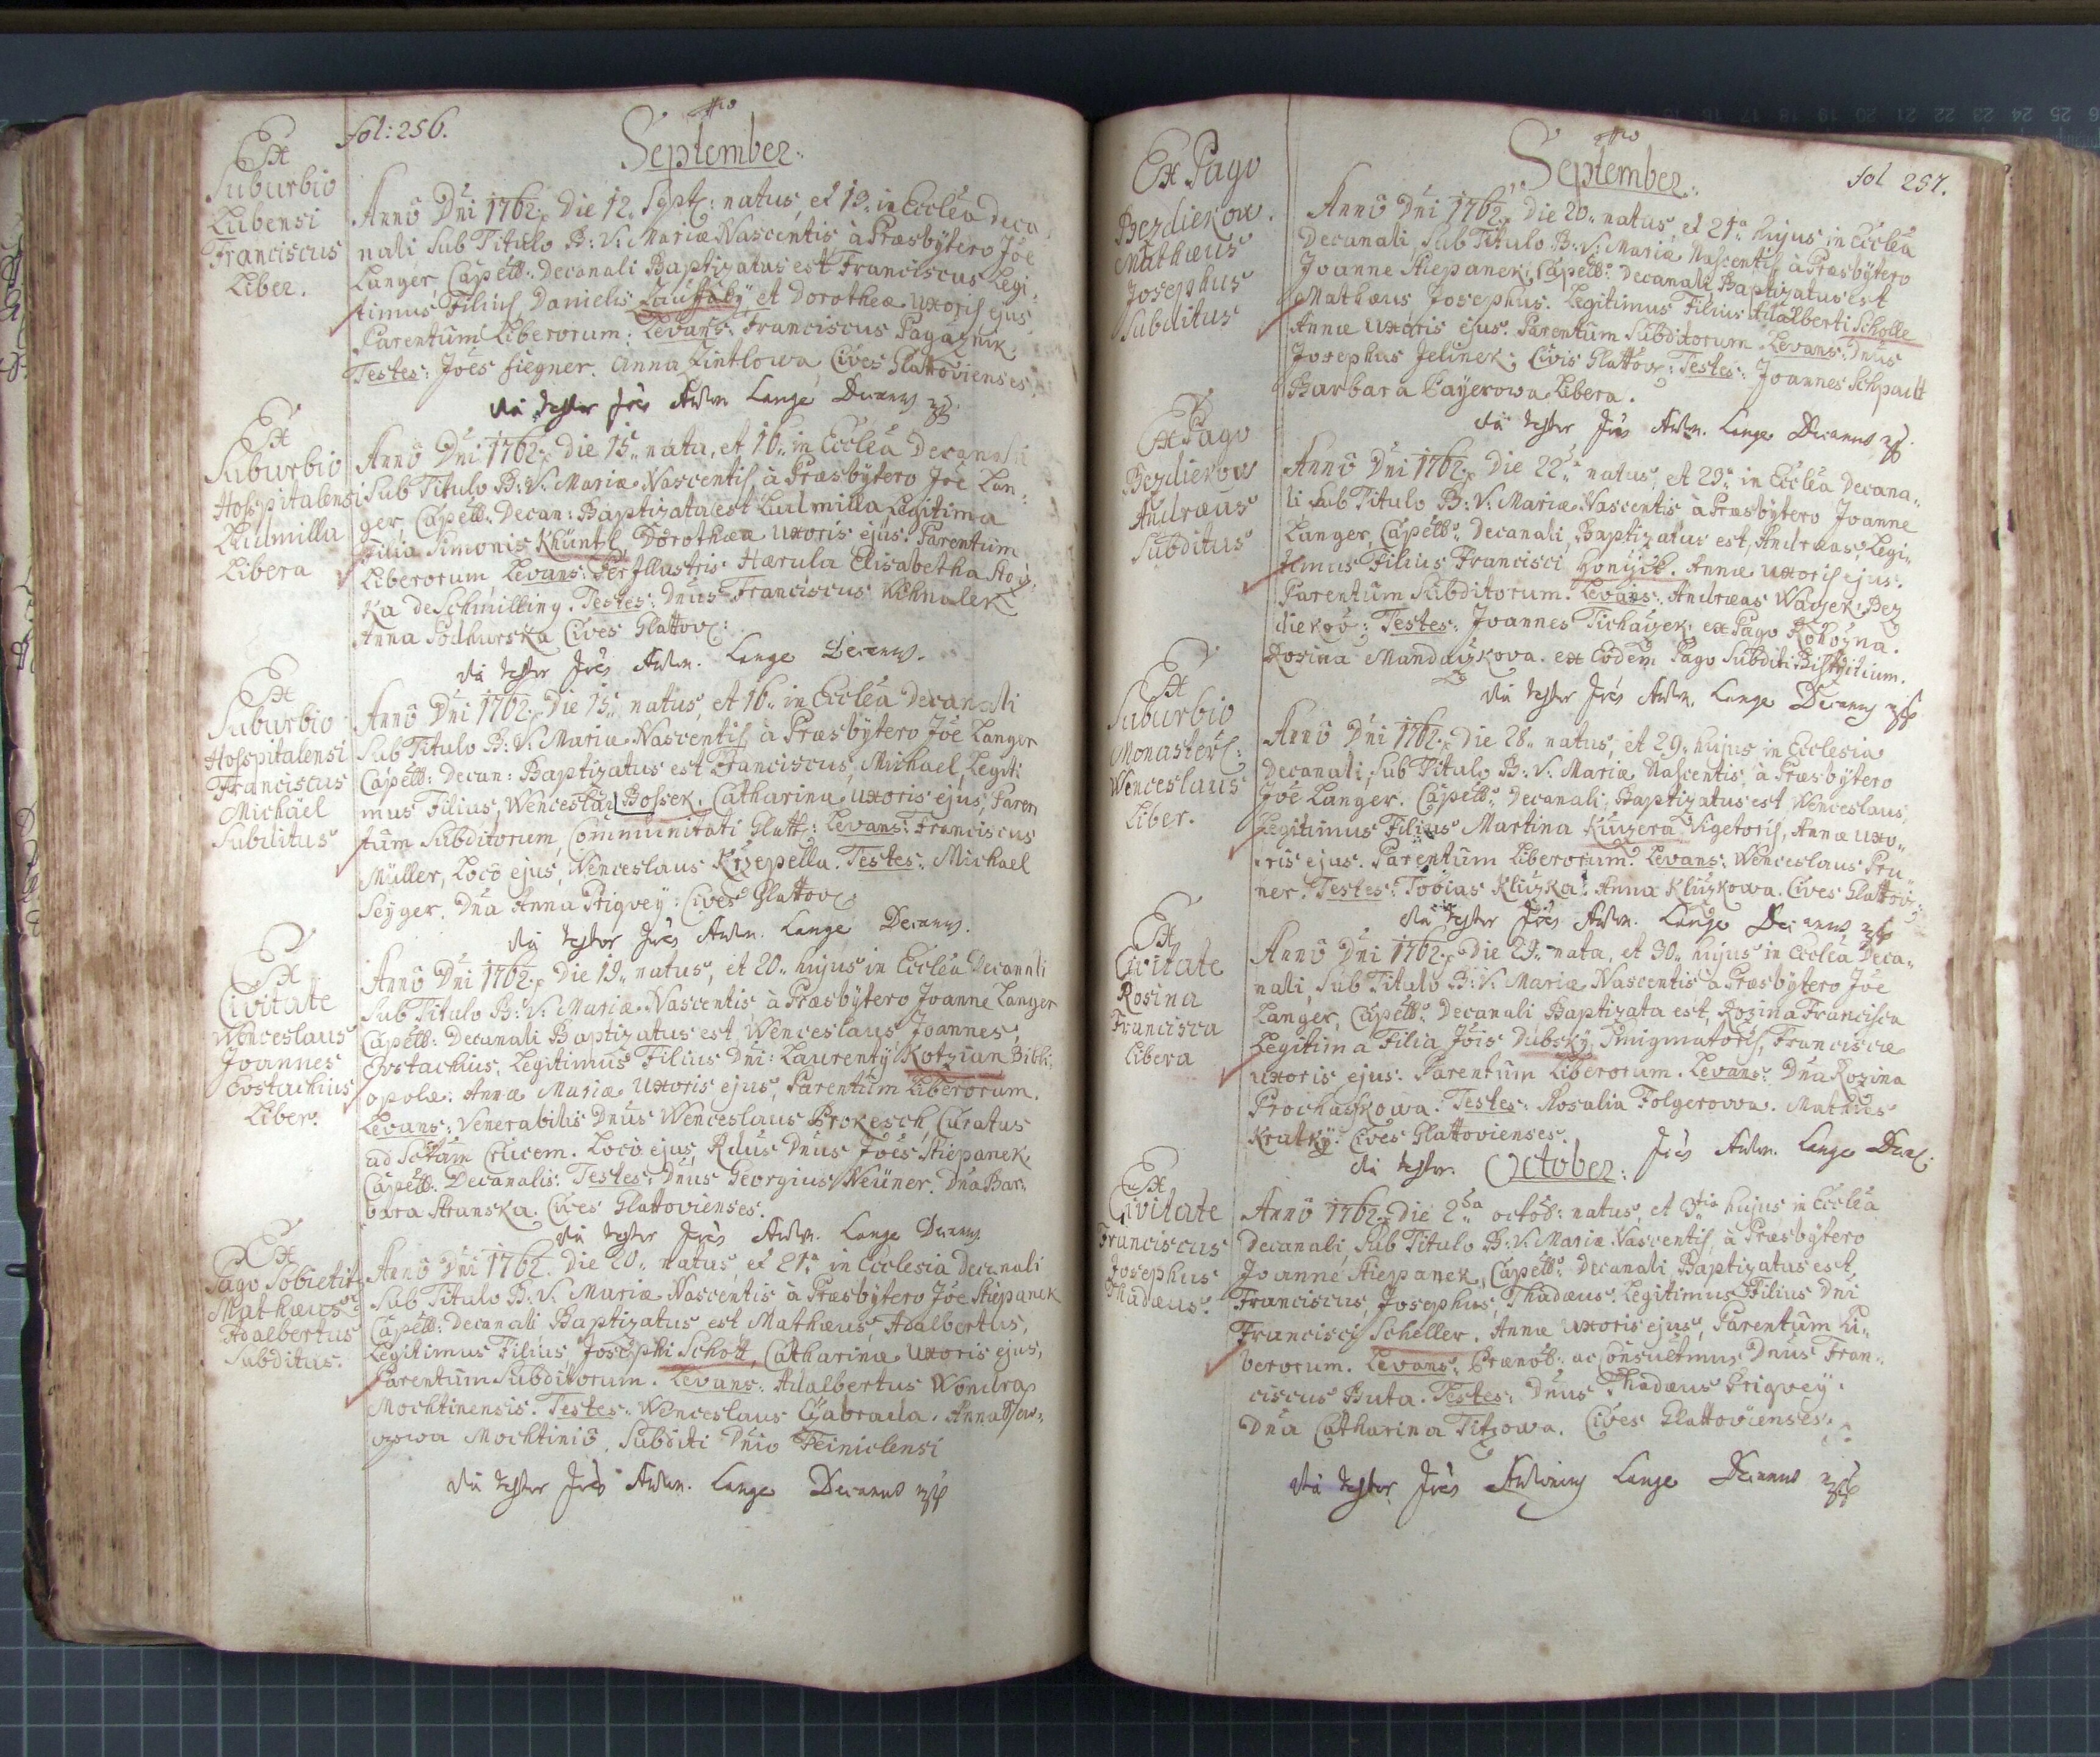 fol: 256.
September.
Ex
Suburbio
Lubensi
Franciscus
Liber.
Anno Dni 1762. Die 12. Sept: natus, et 13. in Ecclea Deca
nali Sub Titulo B: V: Mariæ Nascentis à Præsbÿtero Joe
Langer, Capell: Decanali Baptizatus est Franciscus Legi:
timus Filius Danielis et Dorotheæ uxoris ejus
Parentum Liberorum: Levans: Franciscus
Testes: Joes Siegner. Anna Cives Glattovienses
Ita testor Joes Anton. Lange Decanus
Ex
Suburbio
Hosspitalensi
Ludmilla
Libera
Anno Dni 1762. Die 15. nata, et 16. in Ecclea Decanali
Sub Titulo B: V: Mariæ Nascentis, à Præsbÿtero Joe Lan:
ger, Capell: Decan: Baptizata est Ludmilla Legitima
Filia Simonis Khüntl, Dorothææ uxoris ejus: Parentum
Liberorum Levans: Per Illustris Hærula Elisabetha Stoÿ:
ka de Schmilling. Testes: Dnus Franciscus
Anna Podhurska Cives Glattov:
Ita testor Joes Anton. Lange Decanus.
Ex
Suburbio
Hosspitalensi
Franciscus
Michael
Subditus
Anno Dni 1762. Die 15. natus, et 16. in Ecclea Decanali
Sub Titulo B: V: Mariæ Nascentis à Præsbÿtero Joe Langer
Capell: Decan: Baptizatus est Franciscus, Michael, Legiti
mus Filius, Wenceslai Bossek, Catharina uxoris ejus, Paren
tum Subditorum, Communitati Glatt: Levans: Franciscus
Müller, Loco ejus, Wenceslaus Krzepella. Testes: Michael
Seÿger, Dna Anna Prigveÿ: Cives Glattov
Ita testor Joes Anton. Lange Decanus.
Ex
Civitate
Wenceslaus
Joannes
Eostachius
Liber.
Anno Dni 1762. Die 19. natus, et 20. hujus in Ecclea Decanali
Sub Titulo B: V: Mariæ Nascentis à Præsbÿtero Joanne Langer
Capell: Decanali Baptizatus est, Wenceslaus Joannes,
Eostachius, Legitimus Filius Dni: Laurentÿ Kotzian Bibli:
opolæ: Annæ Mariæ uxoris ejus, Parentum Liberorum.
Levans: Venerabilis Dnus Wenceslaus Prokesch, Curatus
ad Sctam Crucem. Loco ejus, Rdus Dnus Joes Stiepanek
Capell: Decanalis: Testes: Dnus Georgius Neüner. Dna Bar:
bara Stranska. Cives Glattovienses.
Ita testor Joes Anton. Lange Decanus
Ex
Pago Sobietitz
Mathæus
Adalbertus
Subditus.
Anno Dni 1762. Die 20. natus, et 21. in Ecclesia Decanali
Sub Titulo B: V: Mariæ Nascentis à Præsbÿtero Joe Stiepanek
Capell: Decanali Baptizatus est Mathæus, Adalbertus,
Legitimus Filius Josephi Schott, Catharinæ uxoris ejus,
Parentum Subditorum. Levans: Adalbertus Wondra
Mochtinensis. Testes: Wenceslaus Anna
Mochtinio. Subditi Dnio Teiniclensi
Ita testor Joes Anton. Lange Decanus
September.
fol 257.
Ex Pago
Bezdiekow.
Mathæus
Josephus
Subditus
Anno Dni 1762. Die 20. natus, et 21. hujus in Ecclea
Decanali, Sub Titulo B: V: Mariæ Nascentis, à Præsbÿtero
Joanne Stiepanek, Capell: Decanali Baptizatus est
Mathæus Josephus. Legitimus Filius Adalberti Scholle
Annæ uxoris ejus. Parentum Subditorum. Levans: Dnus
Josephus Jelinek, Civis Glattov: Testes: Joannes Schpadt
Barbara Paÿerowa Libera.
Ita testor Joes Anton. Lange Decanus
Ex Pago
Bezdiekow
Andræus
Subditus
Anno Dni 1762. Die 22. natus, et 23. in Ecclea Decana:
li sub Titulo B: V: Mariæ Nascentis à Præsbÿtero Joanne
Langer, Capell: Decanali, Baptizatus est, Andræas, Legi:
timus Filius Francisci Annæ uxoris ejus.
Parentum Subditorum. Levans: Andræas Wagek: Bez
diekoo: Testes: Joannes Tichaÿek, ex Pago
Rosina Mandauskova. ex Eodem Pago Subditi
Ita testor Joes Anton. Lange Decanus
Ex
Suburbio
Monaster:
Wenceslaus
Liber.
Anno Dni 1762. Die 28. natus, et 29. hujus in Ecclesia
Decanali, Sub Titulo B: V: Mariæ Nascentis à Præsbÿtero
Joe Langer. Capell: Decanali, Baptizatus est Wenceslaus,
Legitimus Filius Martina Kuczera Annæ uxo:
ris ejus. Parentum Liberorum. Levans: Wenceslaus Pru
ner. Testes: Tobias Kluzka. Anna Kluzkowa. Cives Glattov:
Ita testor Joes Anton. Lange Decanus
Ex
Civitate
Rosina
Francisca
Libera
Anno Dni 1762. Die 29. nata, et 30. hujus in Ecclea Deca:
nali, Sub Titulo B: V: Mariæ Nascentis à Præsbÿtero Joe
Langer, Capell: Decanali Baptizata est, Rozina Francisca
Legitima Filia Jois Dubskÿ, Franciscæ
uxoris ejus. Parentum Liberorum. Levans: Dna Rozina
Prochaskowa. Testes: Rosalia Folgerowa. Mathias
Kratkÿ. Cives Glattovienses.
Ita testor. Joes Anton. Lange Decan:
October:
Ex
Civitate
Franciscus
Josephus
Thadæus.
Anno 1762. Die 2da octob: natus, et 3tia hujus in Ecclea
Decanali, Sub Titulo B: V: Mariæ Nascentis, à Præsbÿtero
Joanne Stiepanek, Capell: Decanali Baptizatus est,
Franciscus, Josephus, Thadæus. Legitimus Filius Dni
Francisci Scheller. Annæ uxoris ejus, Parentum Li:
berorum. Levans: Prænob: ac Consultmus Dnus Fran:
ciscus Buta. Testes: Dnus Thadæus Prigveÿ.
Dna Catharina Titzowa. Cives Glattovienses.
Ita testor Joes Antonius Lange Decanus